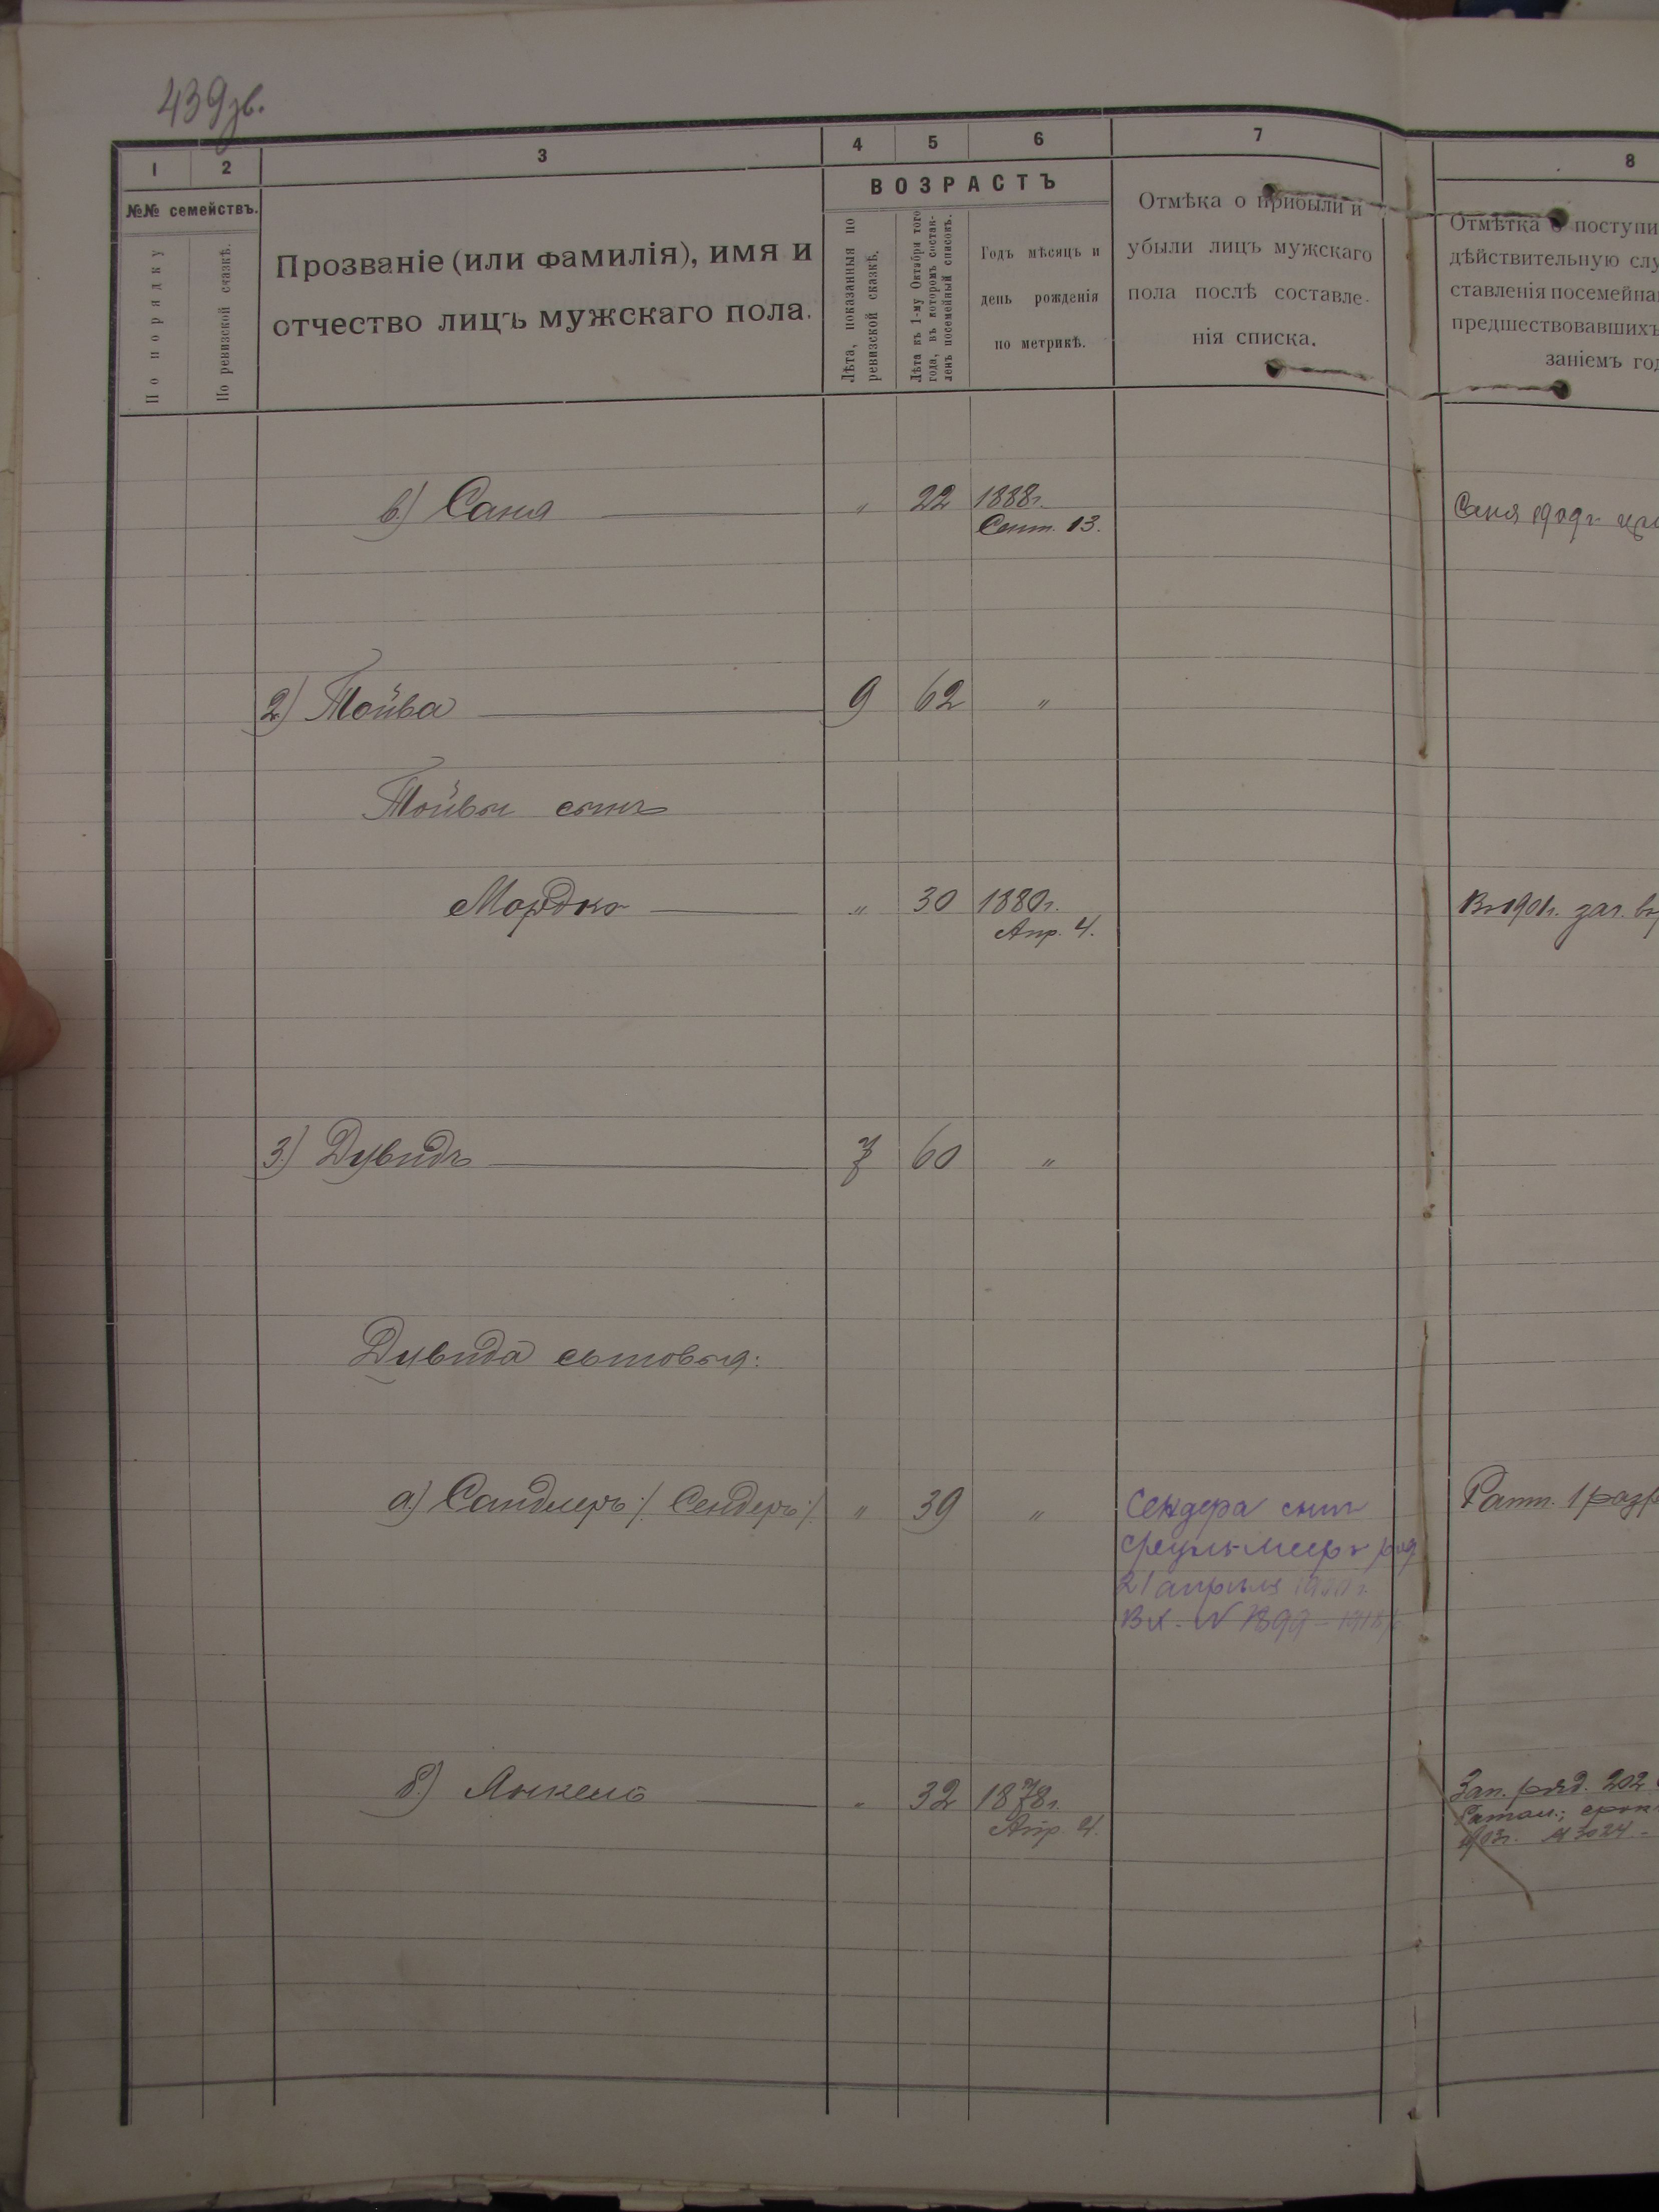 439зв.
1 2 3 4 5 6 7 8
№№ семействъ.
По порядку
По ревизской сказкѣ.
Прозваніе (или фамилія), имя и
отчество лицъ мужскаго пола.
ВОЗРАСТЪ
Лѣта, показанныя по
ревизской сказкѣ.
Лѣта къ 1-му Октября того
года, въ которомъ состав-
ленъ посемейный списокъ.
Годъ мѣсяцъ и
день рожденія
по метрикѣ.
Отмѣка о прибыли и
убыли лицъ мужскаго
пола послѣ составле-
нія списка.
Отмѣтка о поступи
дѣйствительную слу
ставленія посемейна
предшествовавшихъ
заніемъ год
в) Саня " 22 1888г. Саня 1909г.
Сент. 13.
2) Тойва 9 62 "
Тойвы сынъ
Мордко " 30 1880г. Въ 1901г. зач. въ
Апр. 4.
3) Дувидъ 7 60 "
Дувида сыновья:
а) Сандлеръ /Сендеръ/ " 39 " Сендера сынъ Ратн. 1 разр
род
21 апрѣля
Вх. № 1899
б) Янкель " 32 1878г. Зап. ряд. 202
Апр. 4. срок
1903г. № 3024